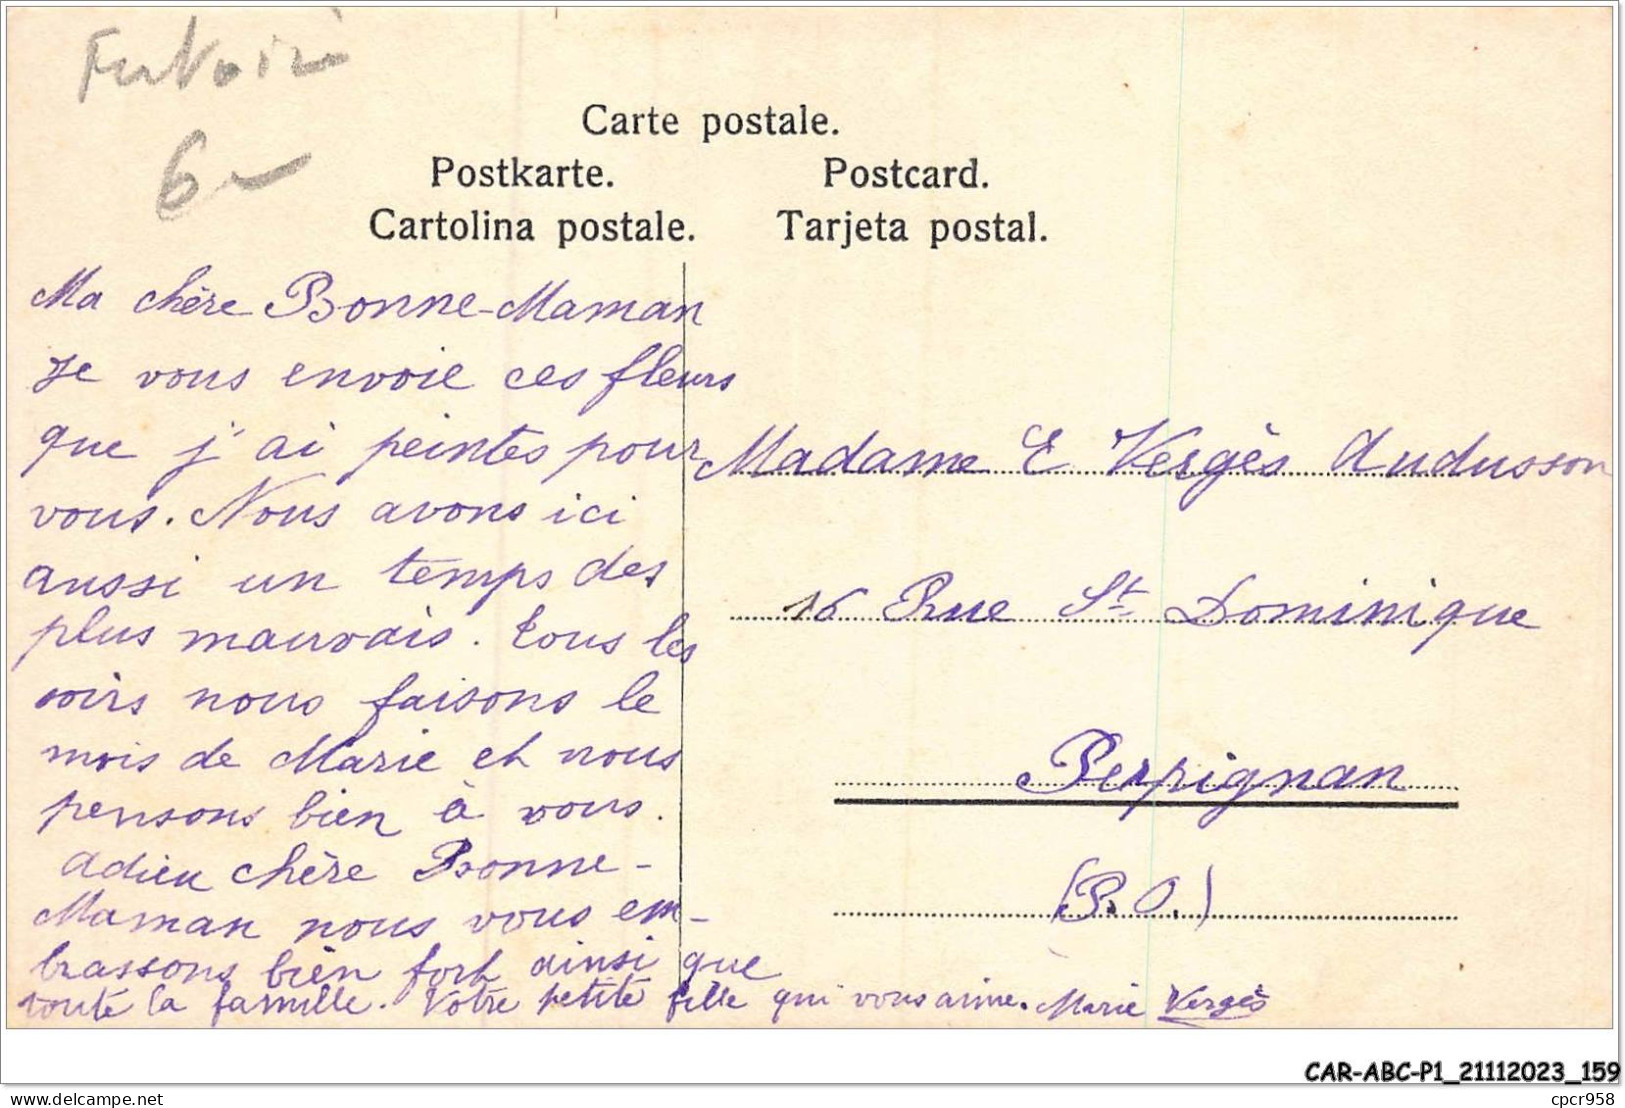 6
Carte postale.
Postkarte. Postcard.
Cartolina postale. Tarjeta postal.
Ma chère Bonne-Maman
Je vous envoie ces fleurs
que j'ai peintes pour
vous. Nous avons ici
aussi un temps des
plus mauvais. Tous les
soirs nous faisons le
mois de Marie et nous
pensons bien à vous.
Adieu chère Bonne-
Maman nous vous em-
brassons bien fort ainsi que
toute la famille. Votre petite fille qui vous aime. Marie Vergès
Madame E Vergès Audusson
16 Rue St Dominique
Perpignan
(P. O.)
CAR-ABC-P1_21112023_159
delcampe.net
cpcr958